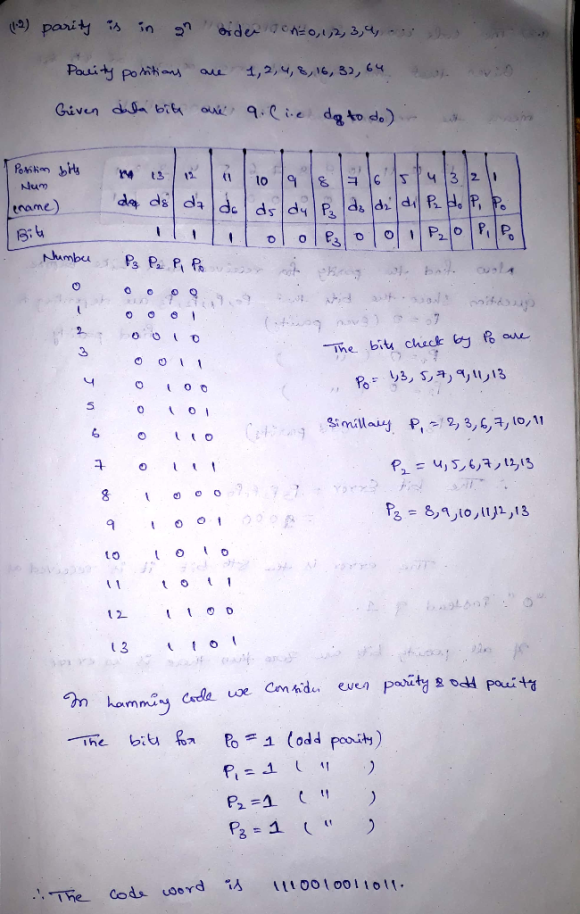 (1.2) parity is in 2ⁿ order n=0,1,2,3,4,
Parity positions are 1,2,4,8,16,32,64
Given data bits are 9. (i.e d8 to d0)
Position bits 14 13 12 11 10 9 8 7 6 5 4 3 2 1
Num
(name) d9 d8 d7 d6 d5 d4 P3 d3 d2 d1 P2 d0 P1 P0
Bits 1 1 1 0 0 P3 0 0 1 P2 0 P1 P0
Number P3 P2 P1 P0
0 0 0 0 0
1 0 0 0 1
2 0 0 1 0
3 0 0 1 1
4 0 1 0 0
5 0 1 0 1
6 0 1 1 0
7 0 1 1 1
8 1 0 0 0
9 1 0 0 1
10 1 0 1 0
11 1 0 1 1
12 1 1 0 0
13 1 1 0 1
The bits check by P0 are
P0 = 1,3, 5,7,9,11,13
Simillary P1 = 2,3,6,7,10,11
P2 = 4,5,6,7,12,13
P3 = 8,9,10,11,12,13
In hamming code we consider even parity & odd parity
The bits for P0 = 1 (odd parity)
P1 = 1 ( " )
P2 = 1 ( " )
P3 = 1 ( " )
∴ The code word is 1110010011011.